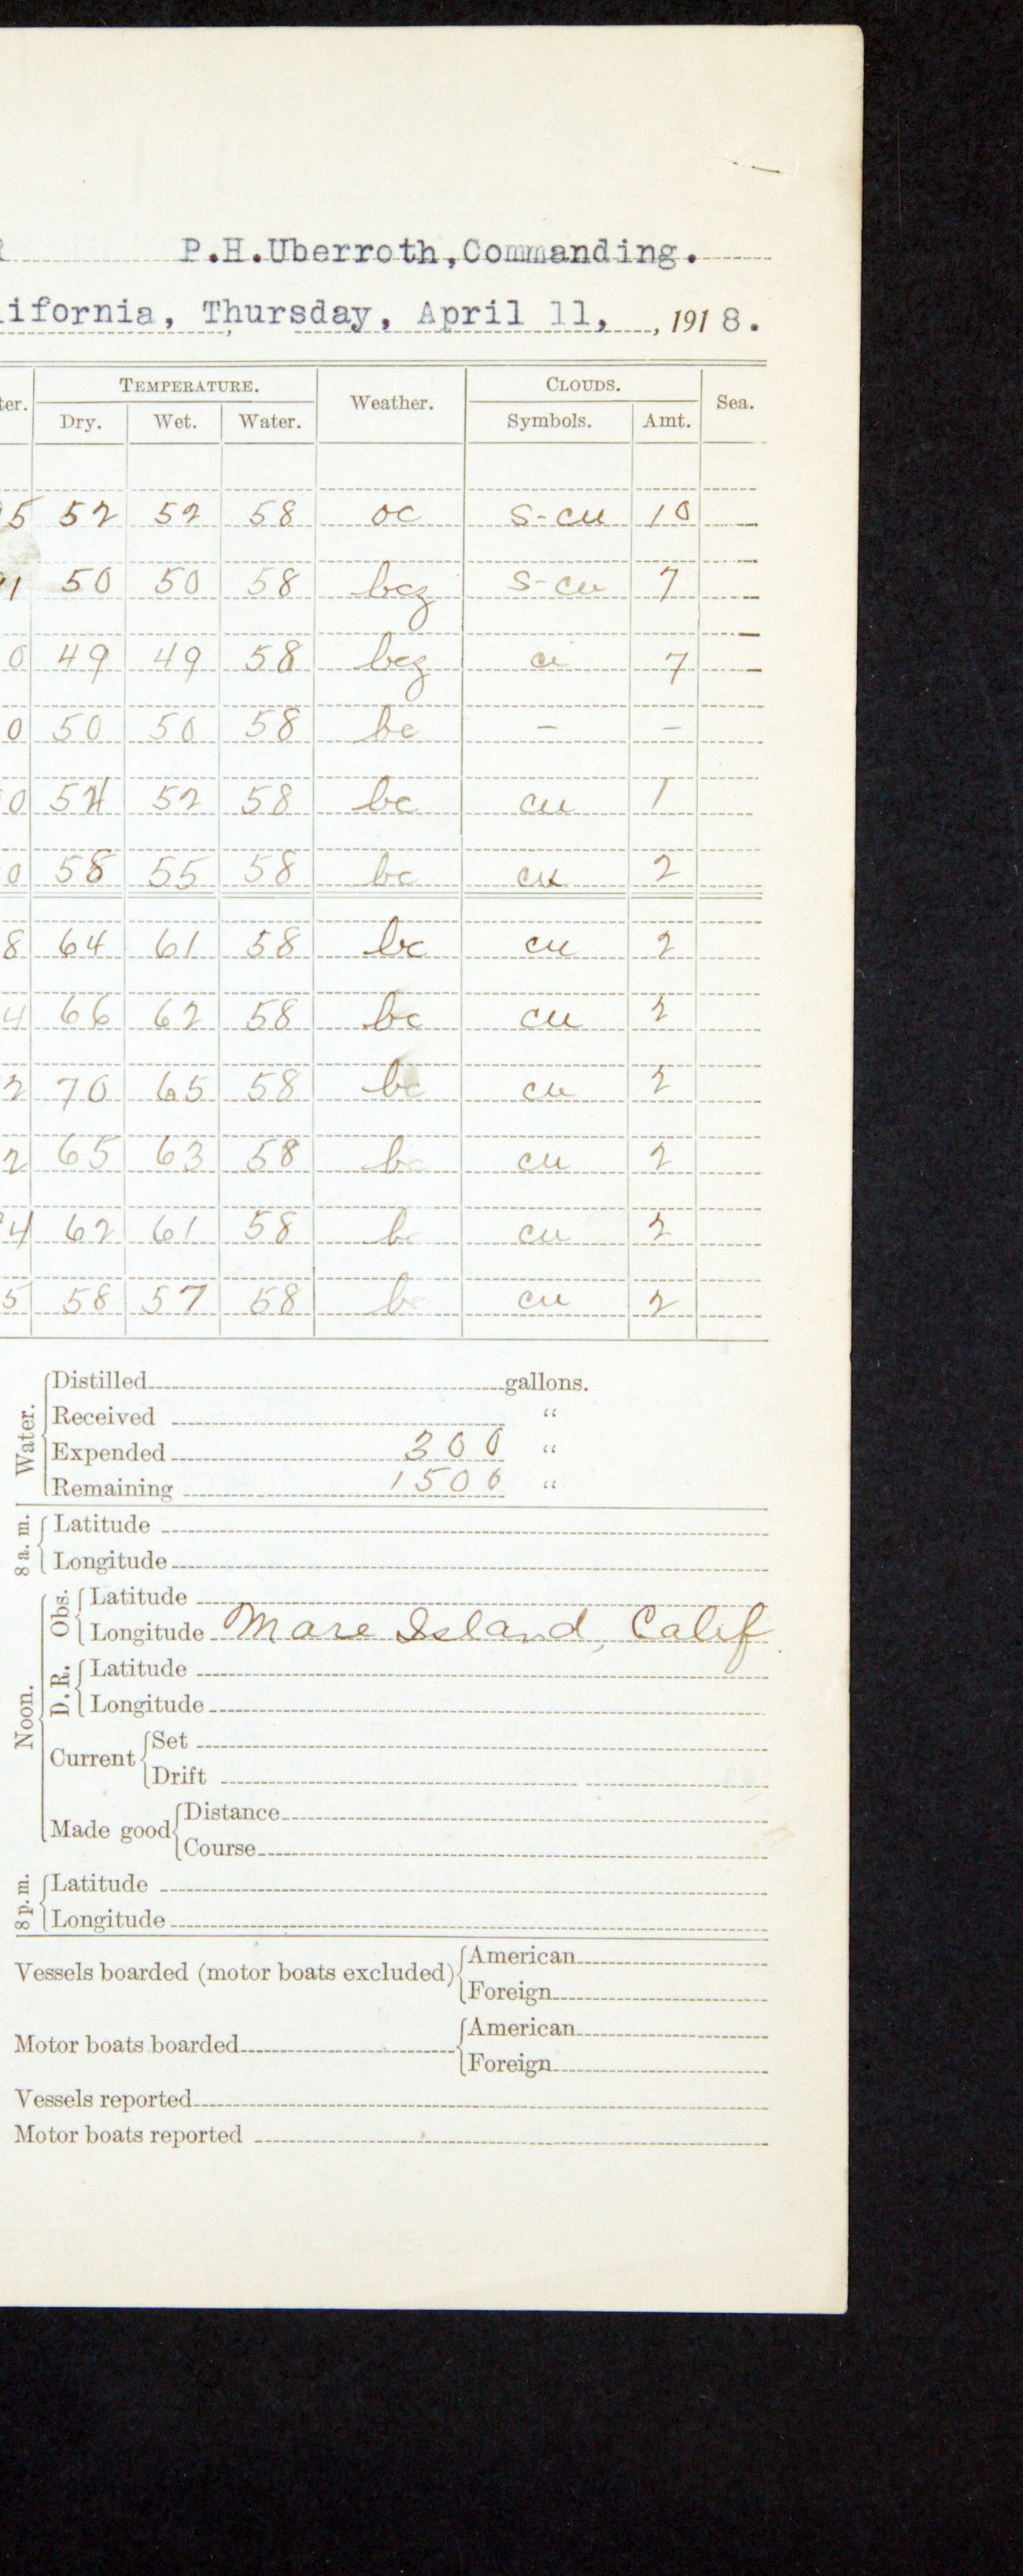 P.H.Uberroth,Commanding.
ifornia, Thursday, April 11, , 1918.
ter. TEMPERATURE. Weather. CLOUDS. Sea.
Dry. Wet. Water. Symbols. Amt.
5 52 52 58 oc S-cu 10
1 50 50 58 bcz S-cu 7
0 49 49 58 bcz ci 7
0 50 50 58 bc – –
0 54 52 58 bc cu 1
0 58 55 58 bc cu 2
8 64 61 58 bc cu 2
4 66 62 58 bc cu 2
2 70 65 58 bc cu 2
2 65 63 58 bc cu 2
4 62 61 58 bc cu 2
5 58 57 58 bc cu 2
Water.
Distilled gallons.
Received “
Expended 300 “
Remaining 1500 “
8 a. m.
Latitude
Longitude
Noon.
Obs.
Latitude
Longitude Mare Island, Calif
D. R.
Latitude
Longitude
Current
Set
Drift
Made good
Distance
Course
8 p. m.
Latitude
Longitude
Vessels boarded (motor boats excluded)
American
Foreign
Motor boats boarded
American
Foreign
Vessels reported
Motor boats reported